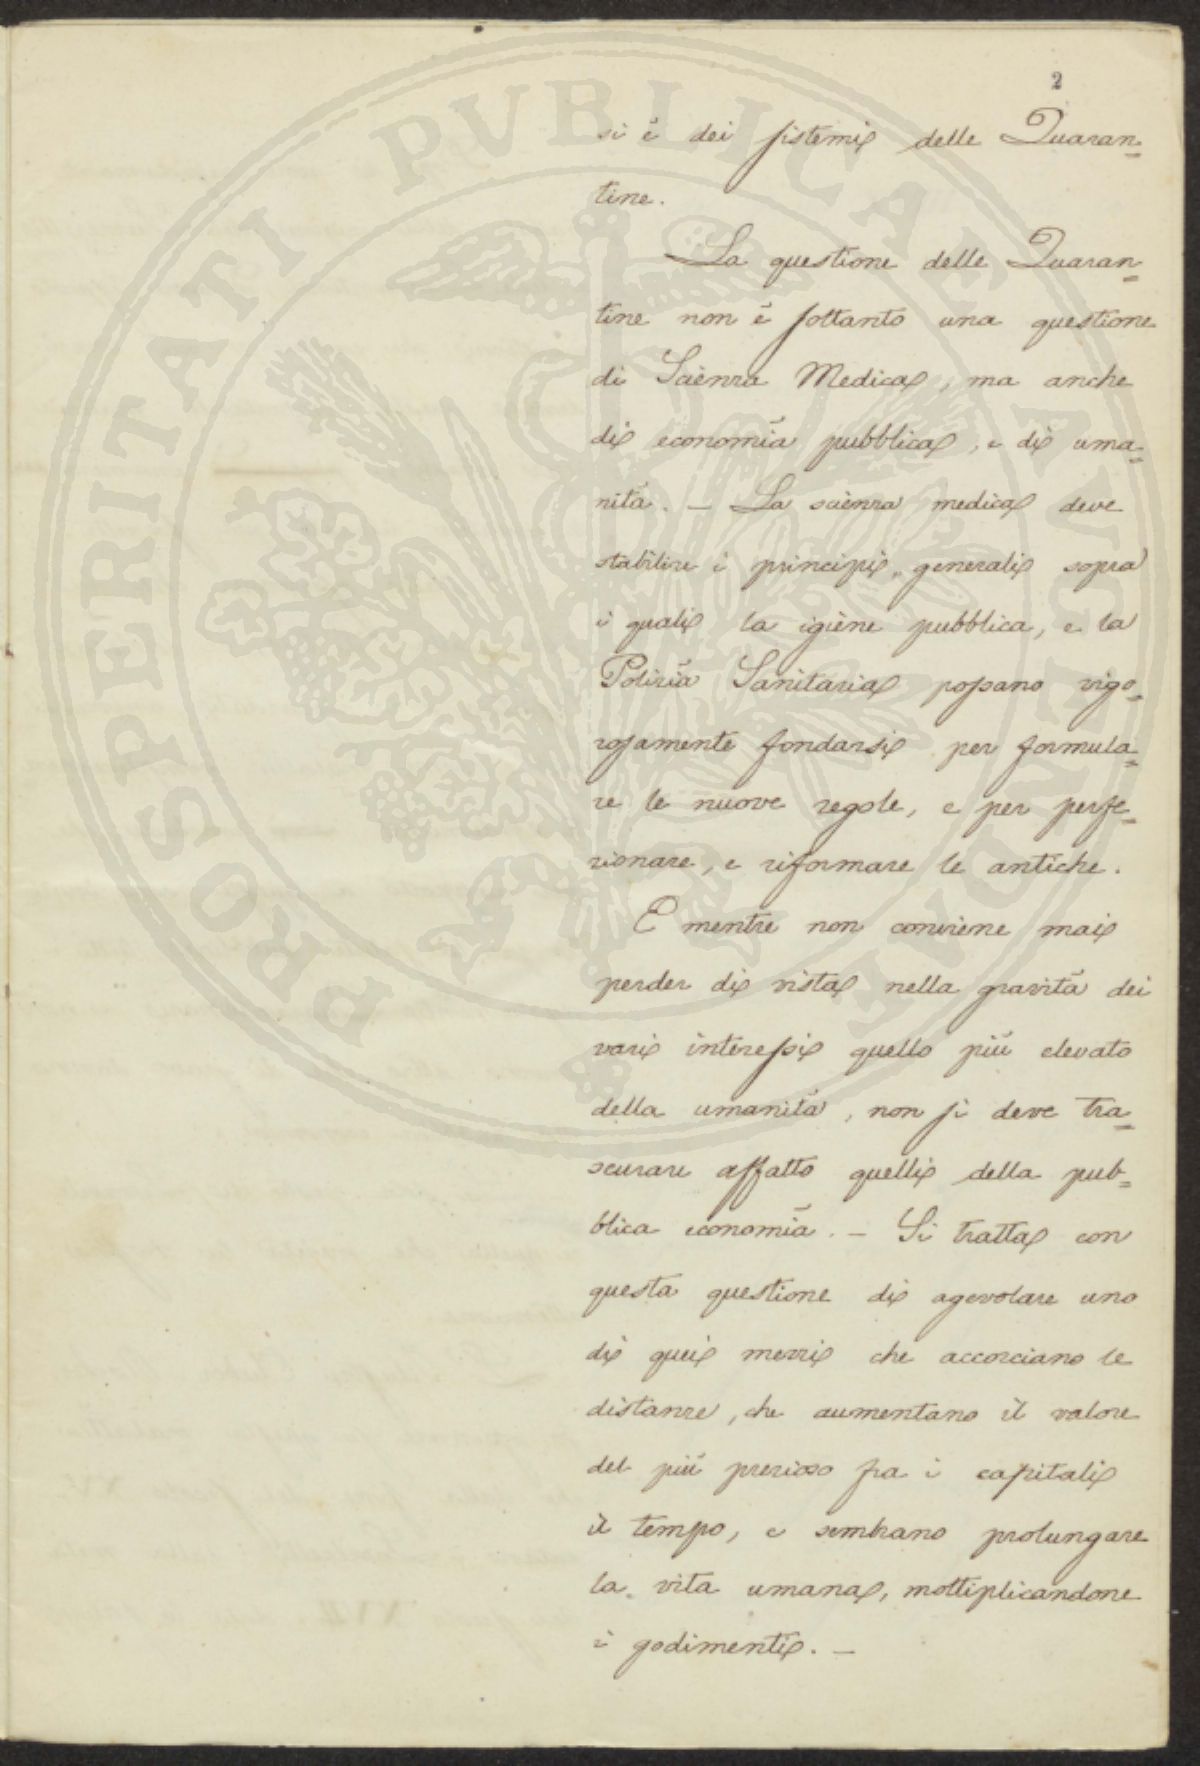 2
si è dei sistemi delle Quaran=
tine.
La questione delle Quaran=
tine non è soltanto una questione
di Scienza Medica, ma anche
di economia pubblica, e di uma=
nità. — La scienza medica deve
stabilire i principii generali sopra
i quali la igiene pubblica, e la
Polizia Sanitaria possano vigo=
rosamente fondarsi per formula=
re le nuove regole, e per perfe=
zionare, e riformare le antiche.
E mentre non conviene mai
perder di vista nella gravità dei
varii interessi quello più elevato
della umanità, non si deve tra=
scurare affatto quelli della pub=
blica economia. — Si tratta con
questa questione di agevolare uno
di quei mezzi che accorciano le
distanze, che aumentano il valore
del più prezioso fra i capitali
il tempo, e sembrano prolungare
la vita umana, moltiplicandone
i godimenti. —
PROSPERITATI PVBLICAE AVGENDAE